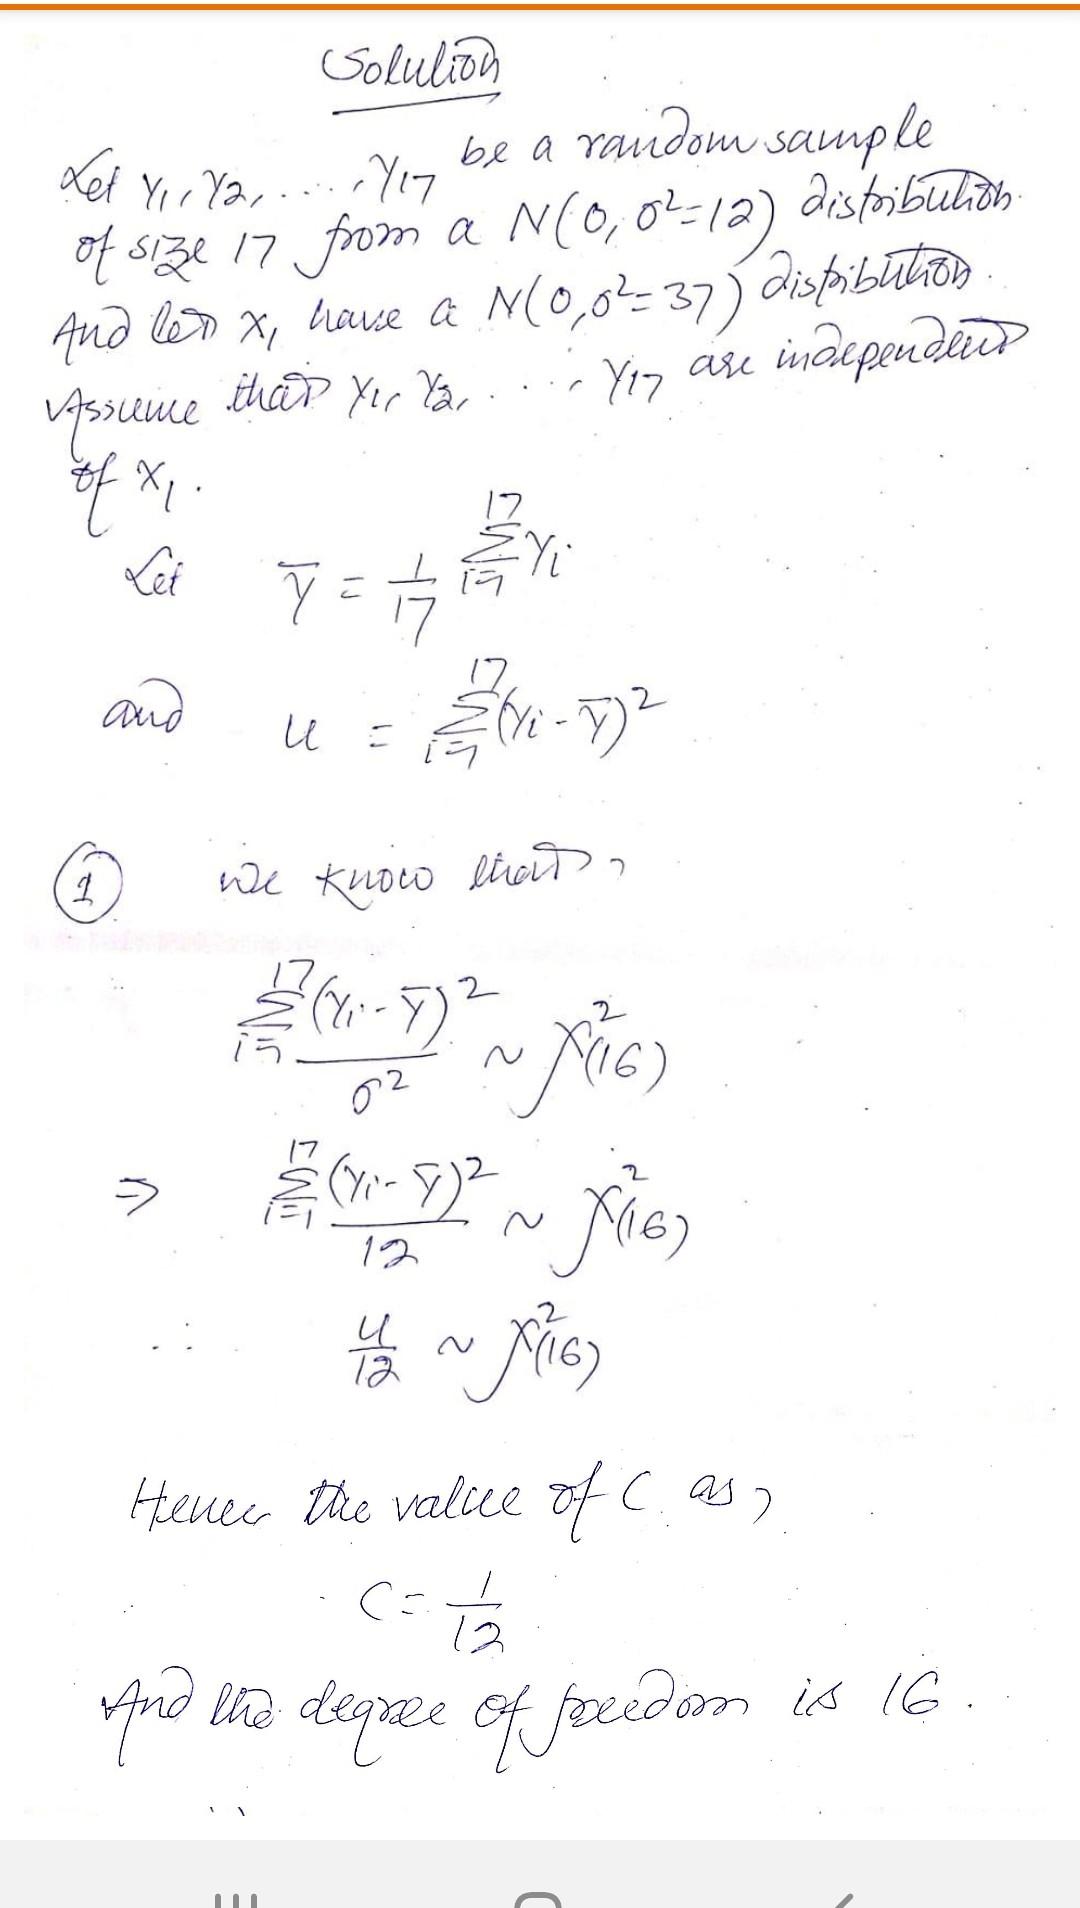 Solution
Let Y₁, Y₂, ....., Y₁₇ be a random sample
of size 17 from a N(0, σ²=12) distribution.
And let X₁ have a N(0, σ²=37) distribution.
Assume that Y₁, Y₂, ...., Y₁₇ are independent
of X₁.
Let Ȳ = 1/17 Σ_{i=1}^{17} Yᵢ
and U = Σ_{i=1}^{17} (Yᵢ - Ȳ)²
① We know that,
Σ_{i=1}^{17} (Yᵢ - Ȳ)² / σ² ~ χ²(16)
⇒ Σ_{i=1}^{17} (Yᵢ - Ȳ)² / 12 ~ χ²(16)
∴ U/12 ~ χ²(16)
Hence the value of C as,
C = 1/12
And the degree of freedom is 16.